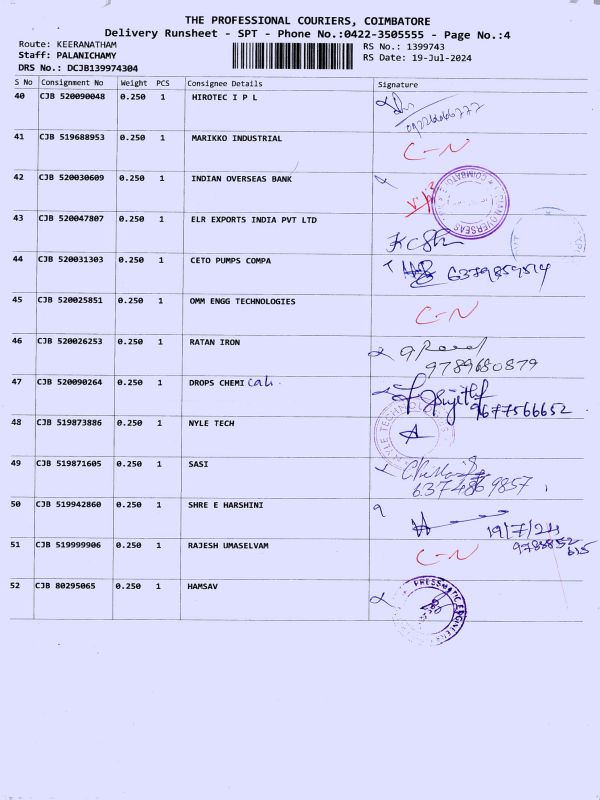 THE PROFESSIONAL COURIERS, COIMBATORE
Delivery Runsheet - SPT - Phone No.:0422-3505555 - Page No.:4
Route: KEERANATHAM
RS No.: 1399743
Staff: PALANICHAMY
RS Date: 19-Jul-2024
DRS No.: DCJB139974304
S No Consignment No Weight PCS Consignee Details Signature
40 CJB 520090048 0.250 1 HIROTEC I P L
41 CJB 519688953 0.250 1 MARIKKO INDUSTRIAL C-N
42 CJB 520030609 0.250 1 INDIAN OVERSEAS BANK
43 CJB 520047807 0.250 1 ELR EXPORTS INDIA PVT LTD
44 CJB 520031303 0.250 1 CETO PUMPS COMPA 6379859514
45 CJB 520025851 0.250 1 OMM ENGG TECHNOLOGIES C-N
46 CJB 520026253 0.250 1 RATAN IRON
9789680879
47 CJB 520090264 0.250 1 DROPS CHEMI Cals.
9677566652
48 CJB 519873886 0.250 1 NYLE TECH NYLE TECHNOLOGIES
49 CJB 519871605 0.250 1 SASI
6374869857
50 CJB 519942860 0.250 1 SHRE E HARSHINI
19/7/24
51 CJB 519999906 0.250 1 RAJESH UMASELVAM C-N
52 CJB 80295065 0.250 1 HAMSAV